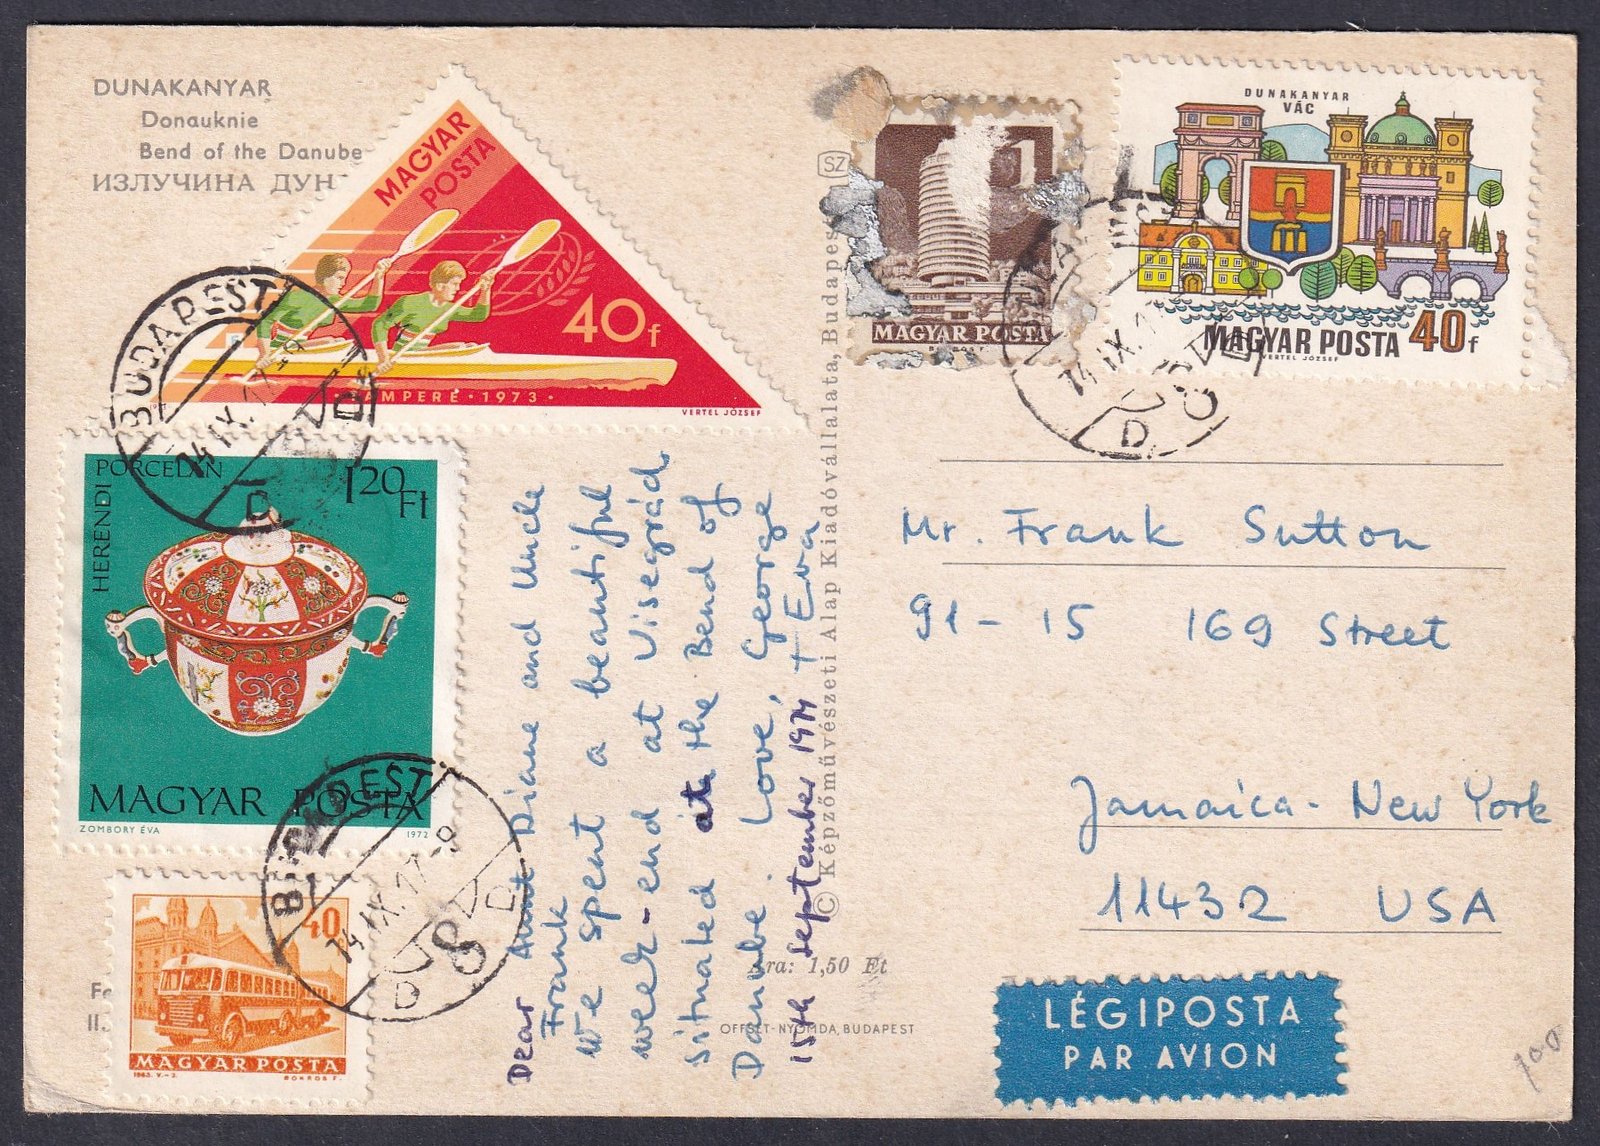 DUNAKANYAR
Donauknie
Bend of the Danube
ИЗЛУЧИНА ДУН
MAGYAR
POSTA
40f
TAMPERE · 1973 ·
VERTEL JÓZSEF
BUDAPEST
74 IX. 17-8
D
HERENDI PORCELÁN
1 20 Ft
MAGYAR POSTA
ZOMBORY ÉVA
1972
BUDAPEST
74 IX. 17-8
D
8
40
MAGYAR POSTA
1963. V.-Z.
BOKROS F.
Dear Aunt Diane and Uncle
Frank
We spent a beautiful
week-end at Visegrád
situated at the Bend of
Danube. Love, George
+ Eva
15th September 1974
© Képzőművészeti Alap Kiadóvállalata, Budapest
SZ
Ára: 1,50 Ft
OFFSET-NYOMDA, BUDAPEST
1
MAGYAR POSTA
DUNAKANYAR
VÁC
MAGYAR POSTA 40f
VERTEL JÓZSEF
74 IX. 1
D
Mr. Frank Sutton
91-15 169 Street
Jamaica - New York
11432 USA
LÉGIPOSTA
PAR AVION
100